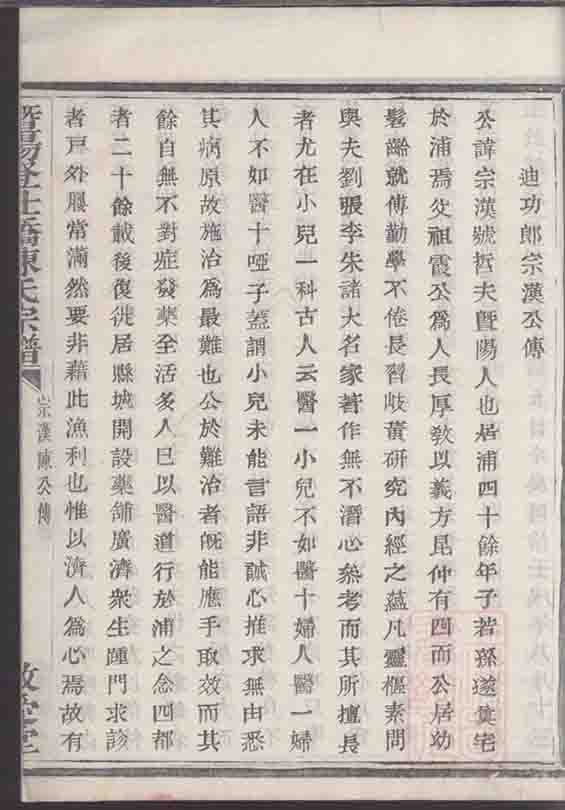 迪功郎宗漢公傳
公諱宗漢號哲夫暨陽人也居浦四十餘年子若孫遂奠宅
於浦焉父祖霞公爲人長厚敎以義方昆仲有四而公居幼
髫齡就傅勤學不倦長習岐黄研究內經之蘊凡靈樞素問
與夫劉張李朱諸大名家著作無不潛心叅考而其所擅長
者尤在小兒一科古人云醫一小兒不如醫十婦人醫一婦
人不如醫十啞子蓋謂小兒未能言語非誠心推求無由悉
其病原故施治爲最難也公於難治者旣能應手取效而其
餘自無不對症發藥全活多人巳以醫道行於浦之念四都
者二十餘載後復徙居縣城開設藥舖廣濟衆生踵門求診
者戸外屨常滿然要非藉此漁利也惟以濟人爲心焉故有
暨陽 橋陳氏宗譜
宗漢陳公傳